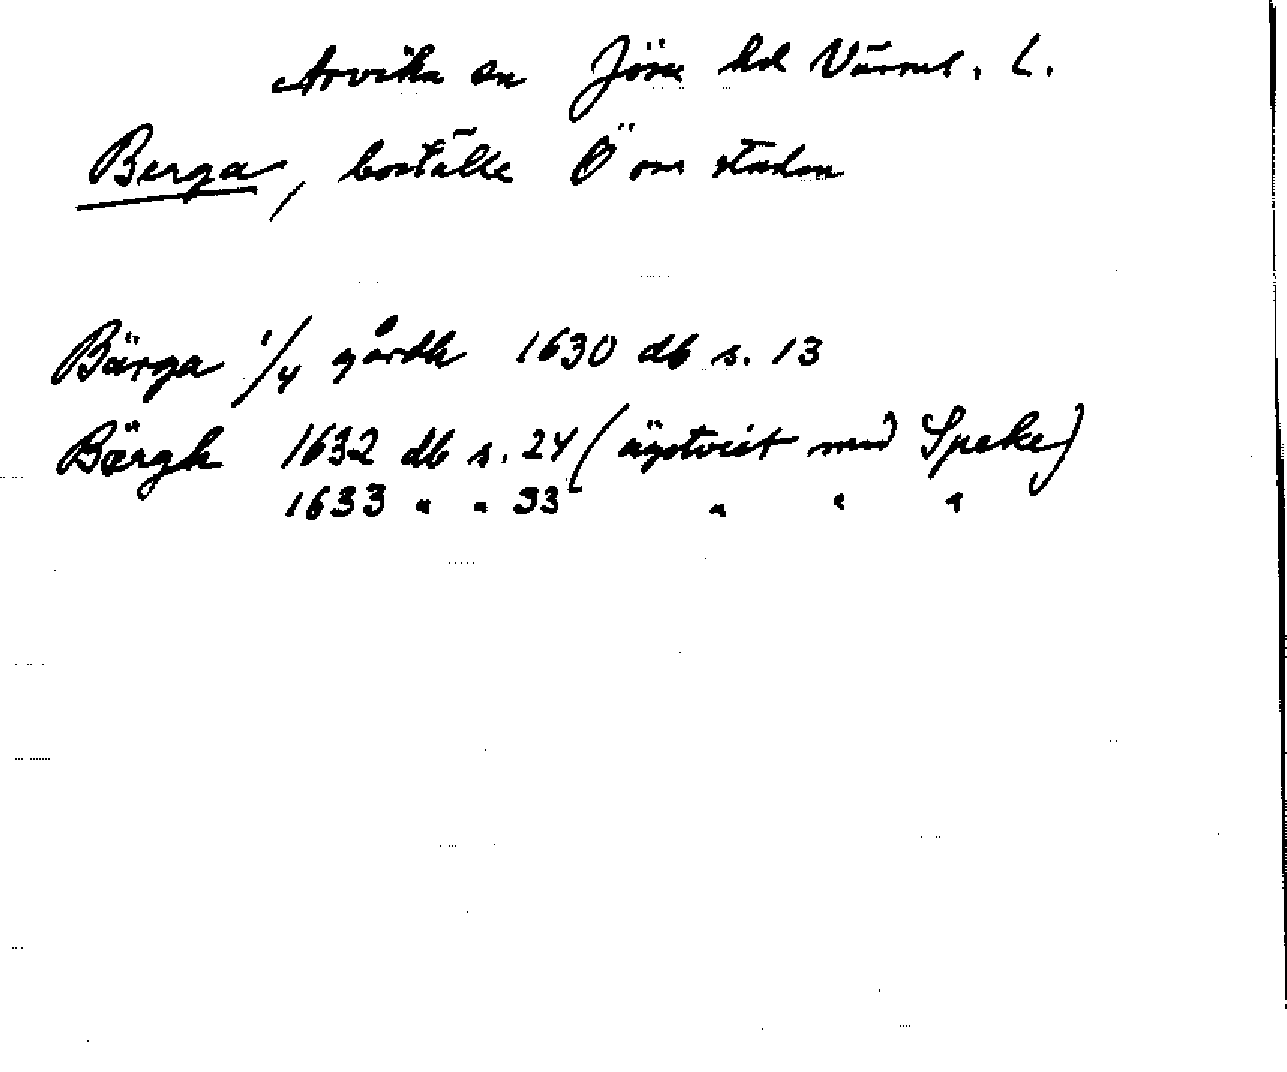 Arvika sn Jösse hd Värml. l.
Berga, boställe Ö om staden
Bärga 1/4 gårdh 1630 db s. 13
Bärgh 1632 db s. 24 (ägotvist med Speke)
1633 " " 33 " " "